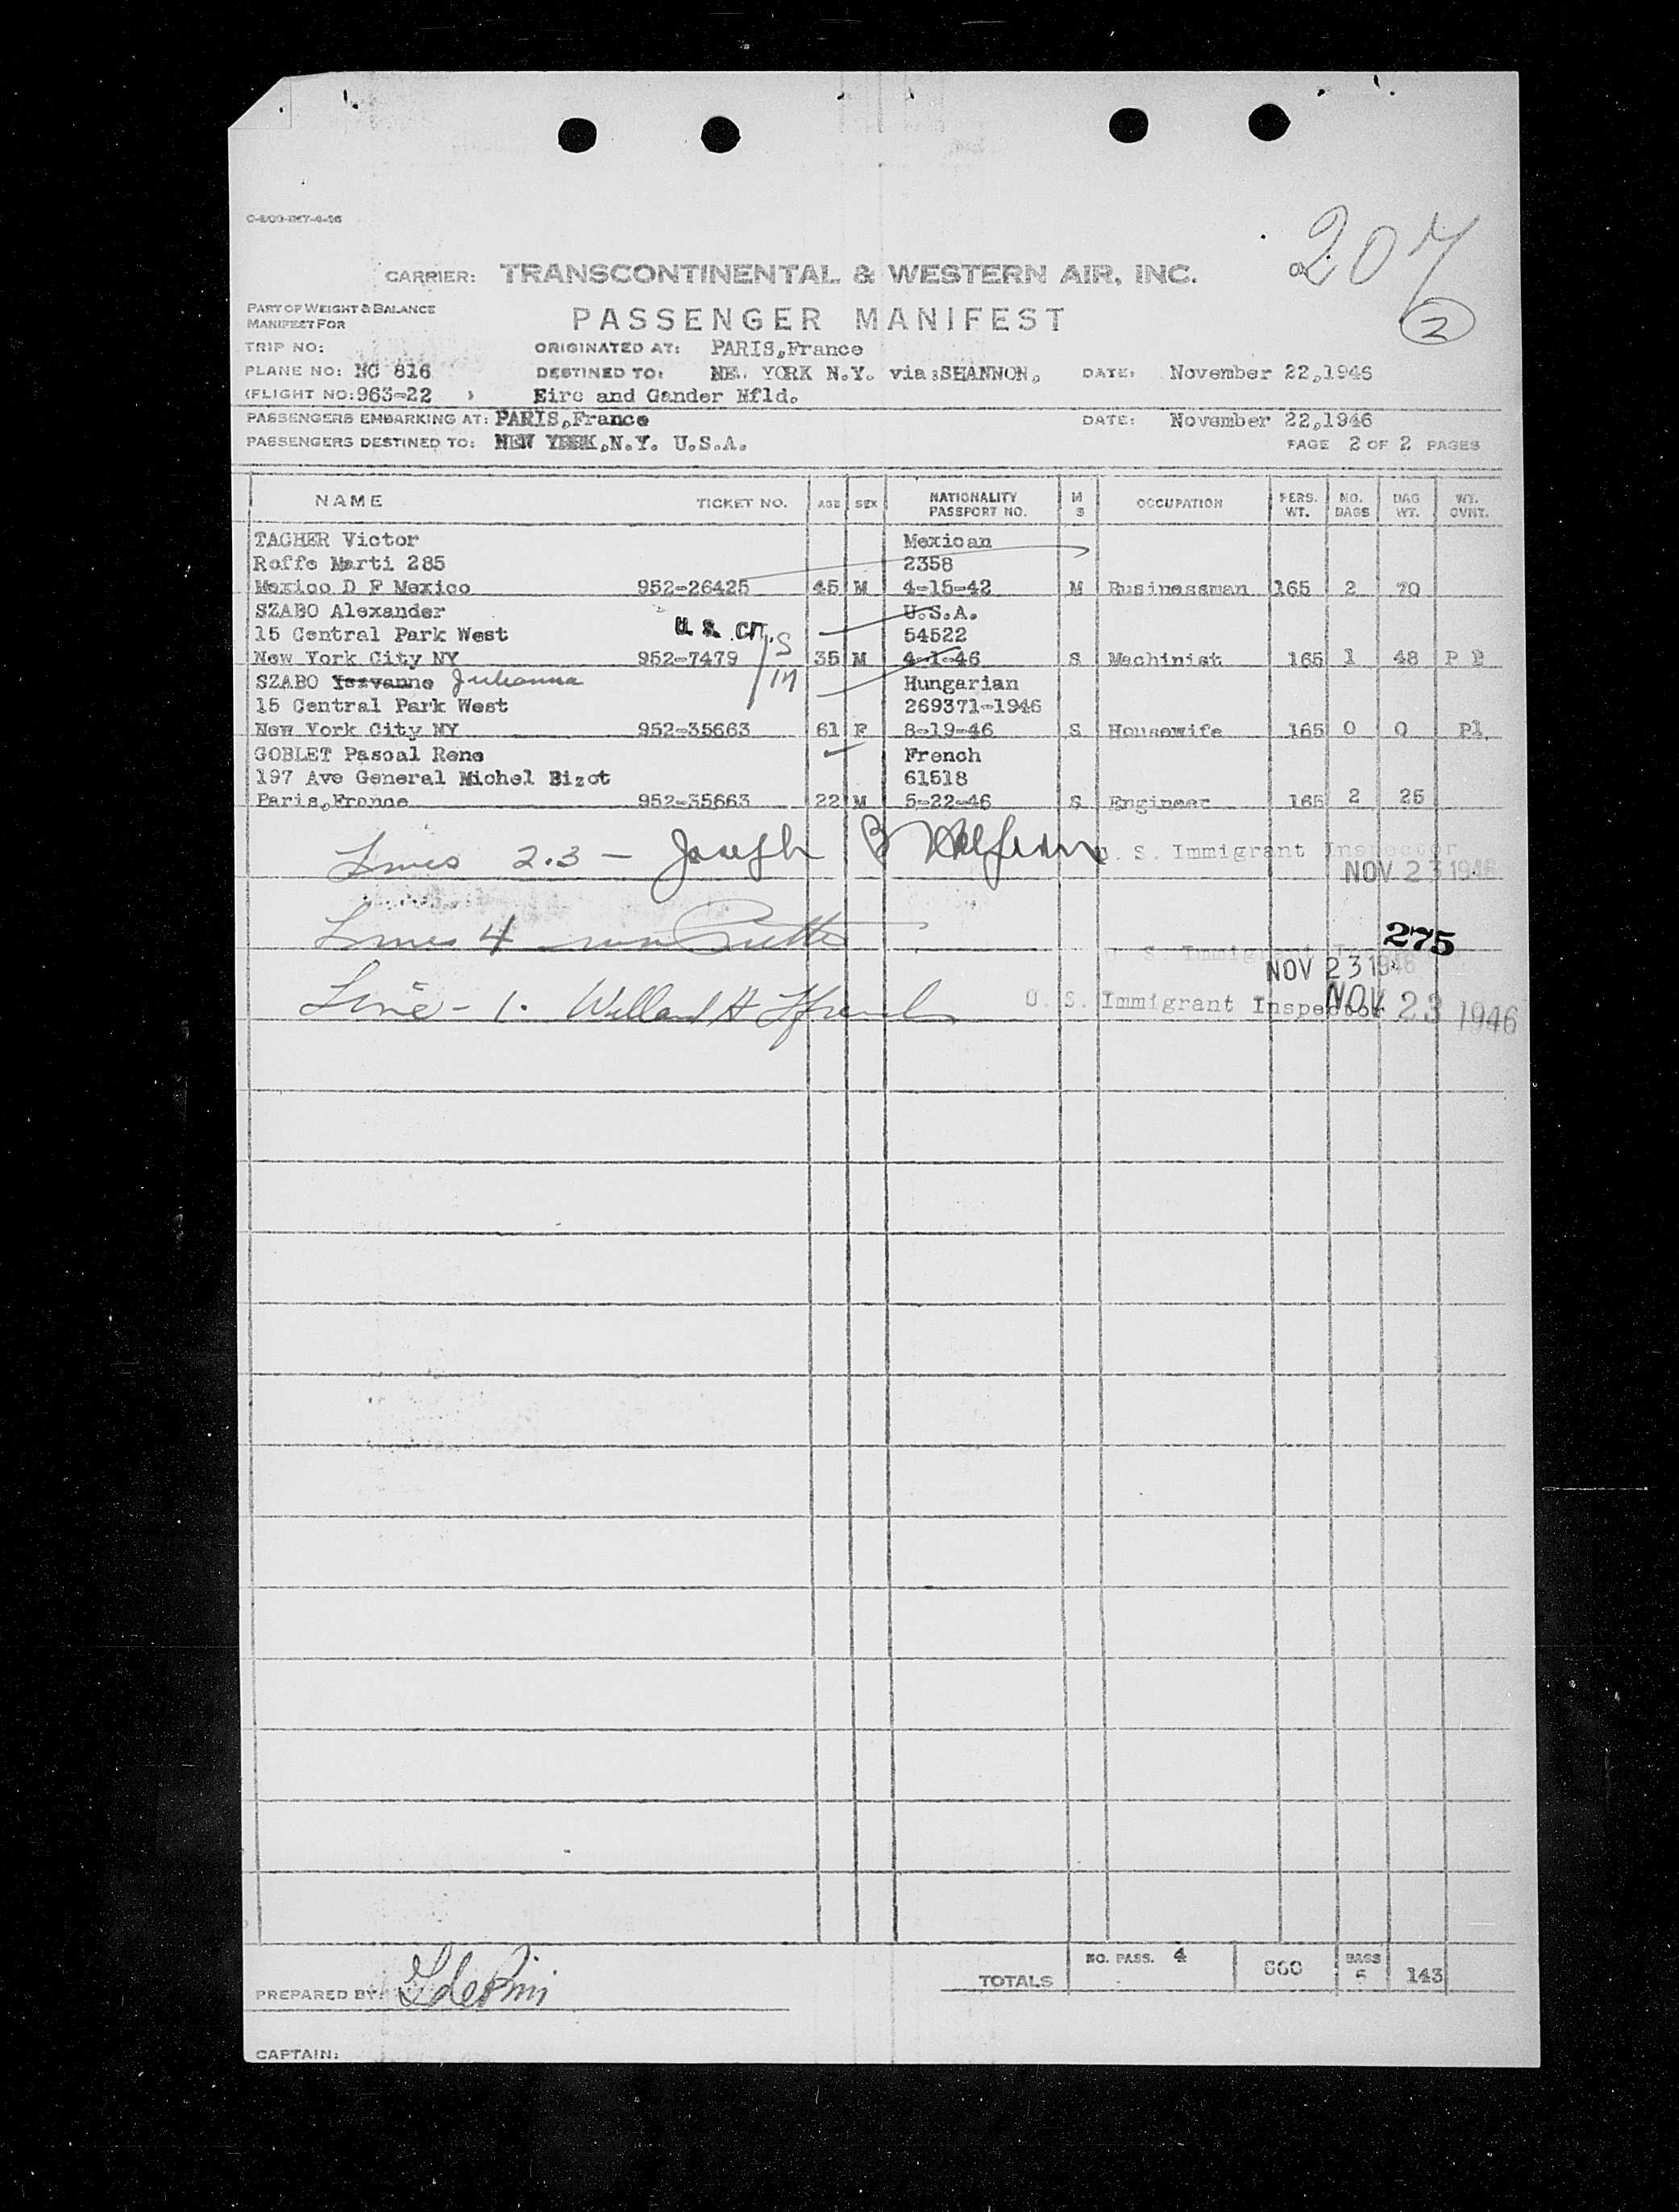 C-200-INT-4-46
207
2
CARRIER: TRANSCONTINENTAL & WESTERN AIR, INC.
PART OF WEIGHT & BALANCE
MANIFEST FOR
PASSENGER MANIFEST
TRIP NO: ORIGINATED AT: PARIS,France
PLANE NO: NC 816 DESTINED TO: NEW YORK N.Y. via:SHANNON, DATE: November 22,1946
(FLIGHT NO:963-22 ) Eire and Gander Nfld.
PASSENGERS EMBARKING AT: PARIS,France DATE: November 22,1946
PASSENGERS DESTINED TO: NEW YORK,N.Y. U.S.A. PAGE 2 OF 2 PAGES
NAME TICKET NO. AGE SEX NATIONALITY PASSPORT NO. M S OCCUPATION PERS. WT. NO. BAGS BAG WT. WT. OVNT.
TACHER Victor Mexican
Roffe Marti 285 2358
Mexico D F Mexico 952-26425 45 M 4-15-42 M Businessman 165 2 70
SZABO Alexander U.S.A.
15 Central Park West U. S. CIT. 54522
New York City NY 952-7479 35 M 4-1-46 S Machinist 165 1 48 P P
SZABO Julianna Hungarian
15 Central Park West 269371-1946
New York City NY 952-35663 61 F 8-19-46 S Housewife 165 0 0 Pl.
GOBLET Pascal Rene French
197 Ave General Michel Bizot 61518
Paris,France 952-35663 22 M 5-22-46 S Engineer 165 2 25
Lines 2.3 - Joseph B U. S. Immigrant Inspector
NOV 23 1946
Lines 4 275
U. S. Immigrant
NOV 23 1946
Line - 1. Willard H U. S. Immigrant Inspector NOV 23 1946
TOTALS NO. PASS. 4 660 BAGS 5 143
PREPARED BY:
CAPTAIN: